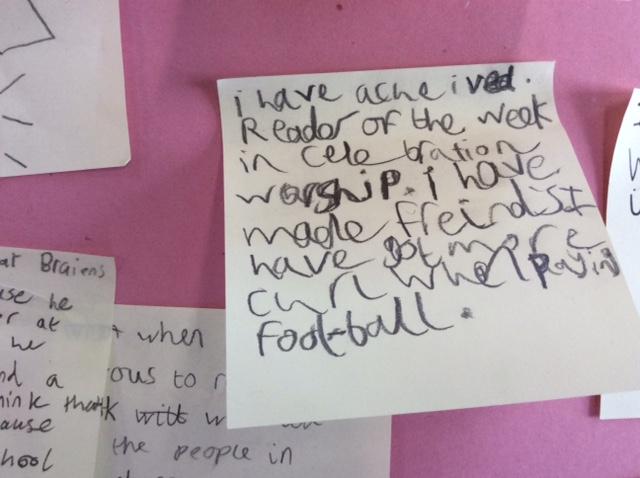 i have acheived.
Reador of the week
in celebration
worship. i have
made ffeirdsI
have got more
curl when paying
football.
at Braiens
use he
er at
he
nd a
hink that
ause
hool
when
ous to
k will w
the people in